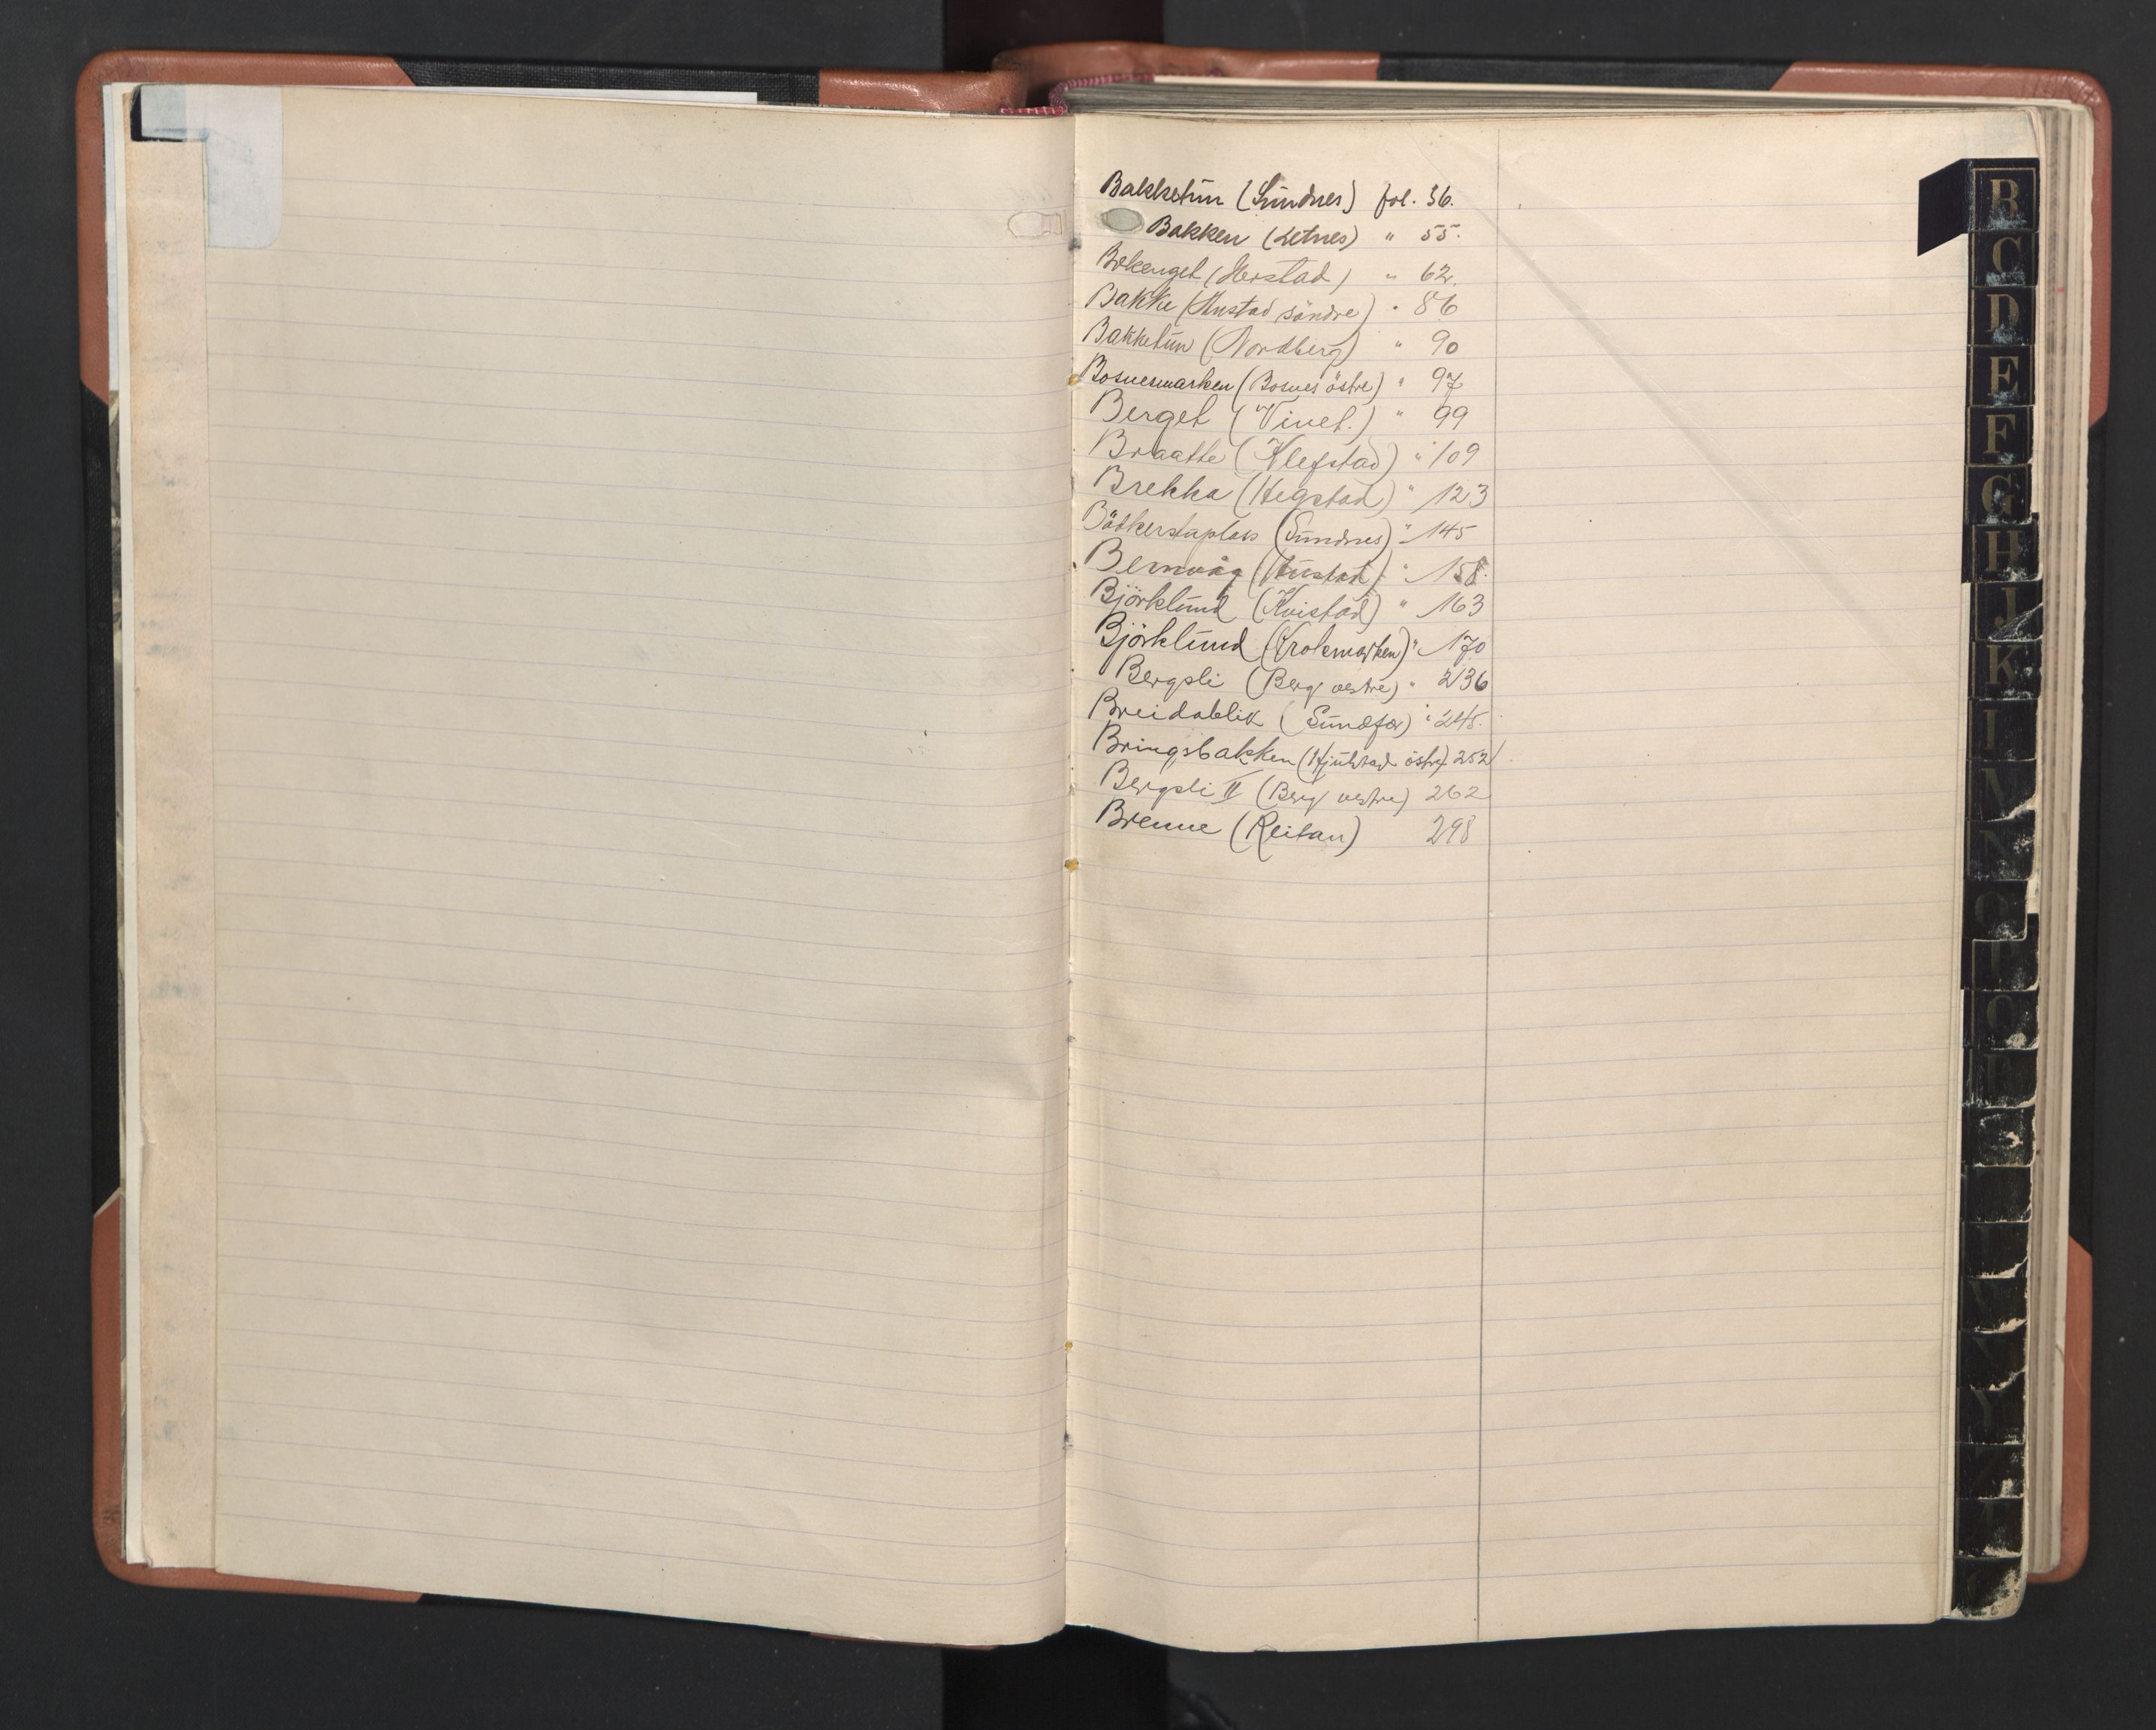 Bakketun (Sundnes) fol. 36.
Bakken (Letnes) " 55.
Bekenget (Herstad) " 62.
Bakke (Hustad söndre) " 86
Bakketun (Nordberg) " 90
Bosnesmarken (Bosnes östre) " 97
Berget (Vinet.) " 99
Braatte (Klefstad) " 109
Brekka (Hegstad) " 123
Bödkerstuplass (Sundnes) " 145
Bernvåg (Hustad) " 158.
Björklund (Kvistad) " 163
Björklund (Krokmarken) " 170
Bergsli (Berg vestre) " 236
Breidablik (Sundfær) " 245.
Bringsbakken (Hjulstad östre) 252
Bergsli II (Berg vestre) 262
Brenne (Reitan) 298
B
C
D
E
F
G
H
J
K
N
O